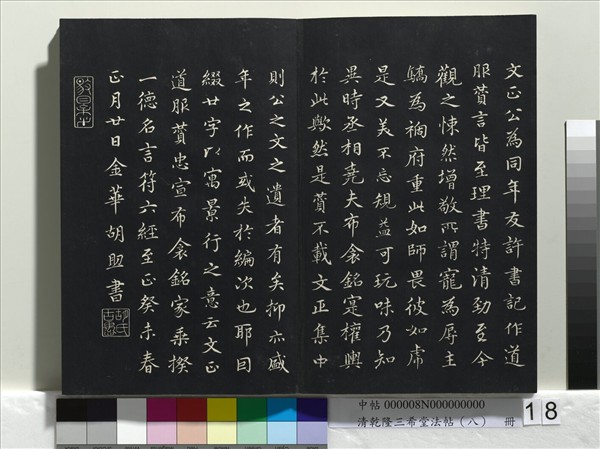 文正公為同年友許書記作道
服贊言皆至理書特清勁至今
觀之悚然增敬所謂寵為辱主
驕為禍府重此如師畏彼如虎
是又美不忘規益可玩味乃知
異時丞相堯夫布衾銘寔權輿
於此歟然是贊不載文正集中
則公之文之遺者有矣抑亦盛
年之作而或失於編次也耶因
綴廿字以寓景行之意云文正
道服贊忠宣布衾銘家乗揆
一德名言符六經至正癸未春
正月廿日金華胡助書
胡氏古愚
中帖 000008N000000000
清乾隆三希堂法帖(八) 冊
18